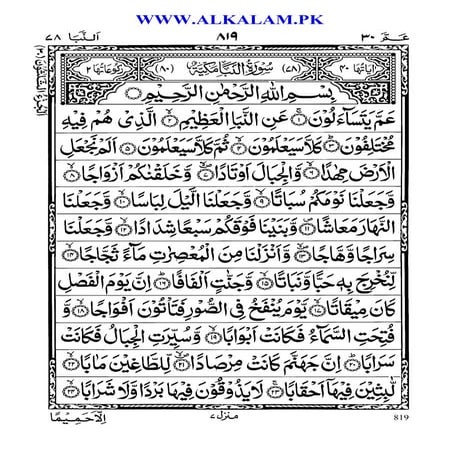 WWW.ALKALAM.PK
عمّ ٣٠ ٨١٩ النّبا ٧٨
اٰیاتها ٤٠ (٧٨) سُوْرَةُ النَّبَاِ مَكِّيَّةٌ (٨٠) ركوعاتها ٢
بِسْمِ اللهِ الرَّحْمٰنِ الرَّحِيْمِ
عَمَّ يَتَسَآءَلُوْنَ ۝١ عَنِ النَّبَاِ الْعَظِيْمِ ۝٢ الَّذِىْ هُمْ فِيْهِ
مُخْتَلِفُوْنَ ۝٣ كَلَّا سَيَعْلَمُوْنَ ۝٤ ثُمَّ كَلَّا سَيَعْلَمُوْنَ ۝٥ اَلَمْ نَجْعَلِ
الْاَرْضَ مِهٰدًا ۝٦ وَّالْجِبَالَ اَوْتَادًا ۝٧ وَّخَلَقْنٰكُمْ اَزْوَاجًا ۝٨
وَّجَعَلْنَا نَوْمَكُمْ سُبَاتًا ۝٩ وَّجَعَلْنَا الَّيْلَ لِبَاسًا ۝١٠ وَّجَعَلْنَا
النَّهَارَ مَعَاشًا ۝١١ وَّبَنَيْنَا فَوْقَكُمْ سَبْعًا شِدَادًا ۝١٢ وَّجَعَلْنَا
سِرَاجًا وَّهَّاجًا ۝١٣ وَّاَنْزَلْنَا مِنَ الْمُعْصِرٰتِ مَآءً ثَجَّاجًا ۝١٤
لِّنُخْرِجَ بِهٖ حَبًّا وَّنَبَاتًا ۝١٥ وَّجَنّٰتٍ اَلْفَافًا ۝١٦ اِنَّ يَوْمَ الْفَصْلِ
كَانَ مِيْقَاتًا ۝١٧ يَّوْمَ يُنْفَخُ فِى الصُّوْرِ فَتَاْتُوْنَ اَفْوَاجًا ۝١٨ وَّ
فُتِحَتِ السَّمَآءُ فَكَانَتْ اَبْوَابًا ۝١٩ وَّسُيِّرَتِ الْجِبَالُ فَكَانَتْ
سَرَابًا ۝٢٠ اِنَّ جَهَنَّمَ كَانَتْ مِرْصَادًا ۝٢١ لِّلطَّاغِيْنَ مَاٰبًا ۝٢٢
لّٰبِثِيْنَ فِيْهَآ اَحْقَابًا ۝٢٣ لَا يَذُوْقُوْنَ فِيْهَا بَرْدًا وَّلَا شَرَابًا ۝٢٤
819 منزل ٧ اِلَّا حَمِيْمًا